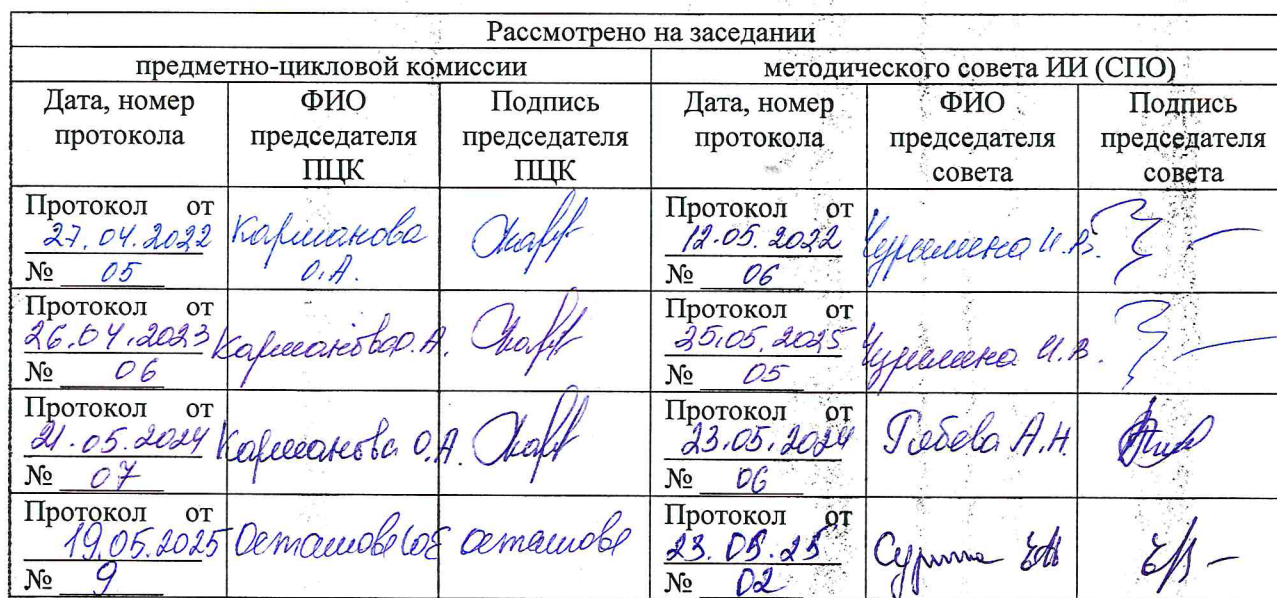 Рассмотрено на заседании
предметно-цикловой комиссии
методического совета ИИ (СПО)
Дата, номер протокола
ФИО председателя ПЦК
Подпись председателя ПЦК
Дата, номер протокола
ФИО председателя совета
Подпись председателя совета
Протокол от
27.04.2022
№ 05
Карманова
О.А.
Протокол от
12.05.2022
№ 06
Чурилина И.В.
Протокол от
26.04.2023
№ 06
Карманова О.А.
Протокол от
25.05.2025
№ 05
Чурилина И.В.
Протокол от
21.05.2024
№ 07
Карманова О.А.
Протокол от
23.05.2024
№ 06
А.Н.
Протокол от
19.05.2025
№ 9
Протокол от
23.05.25
№ 02